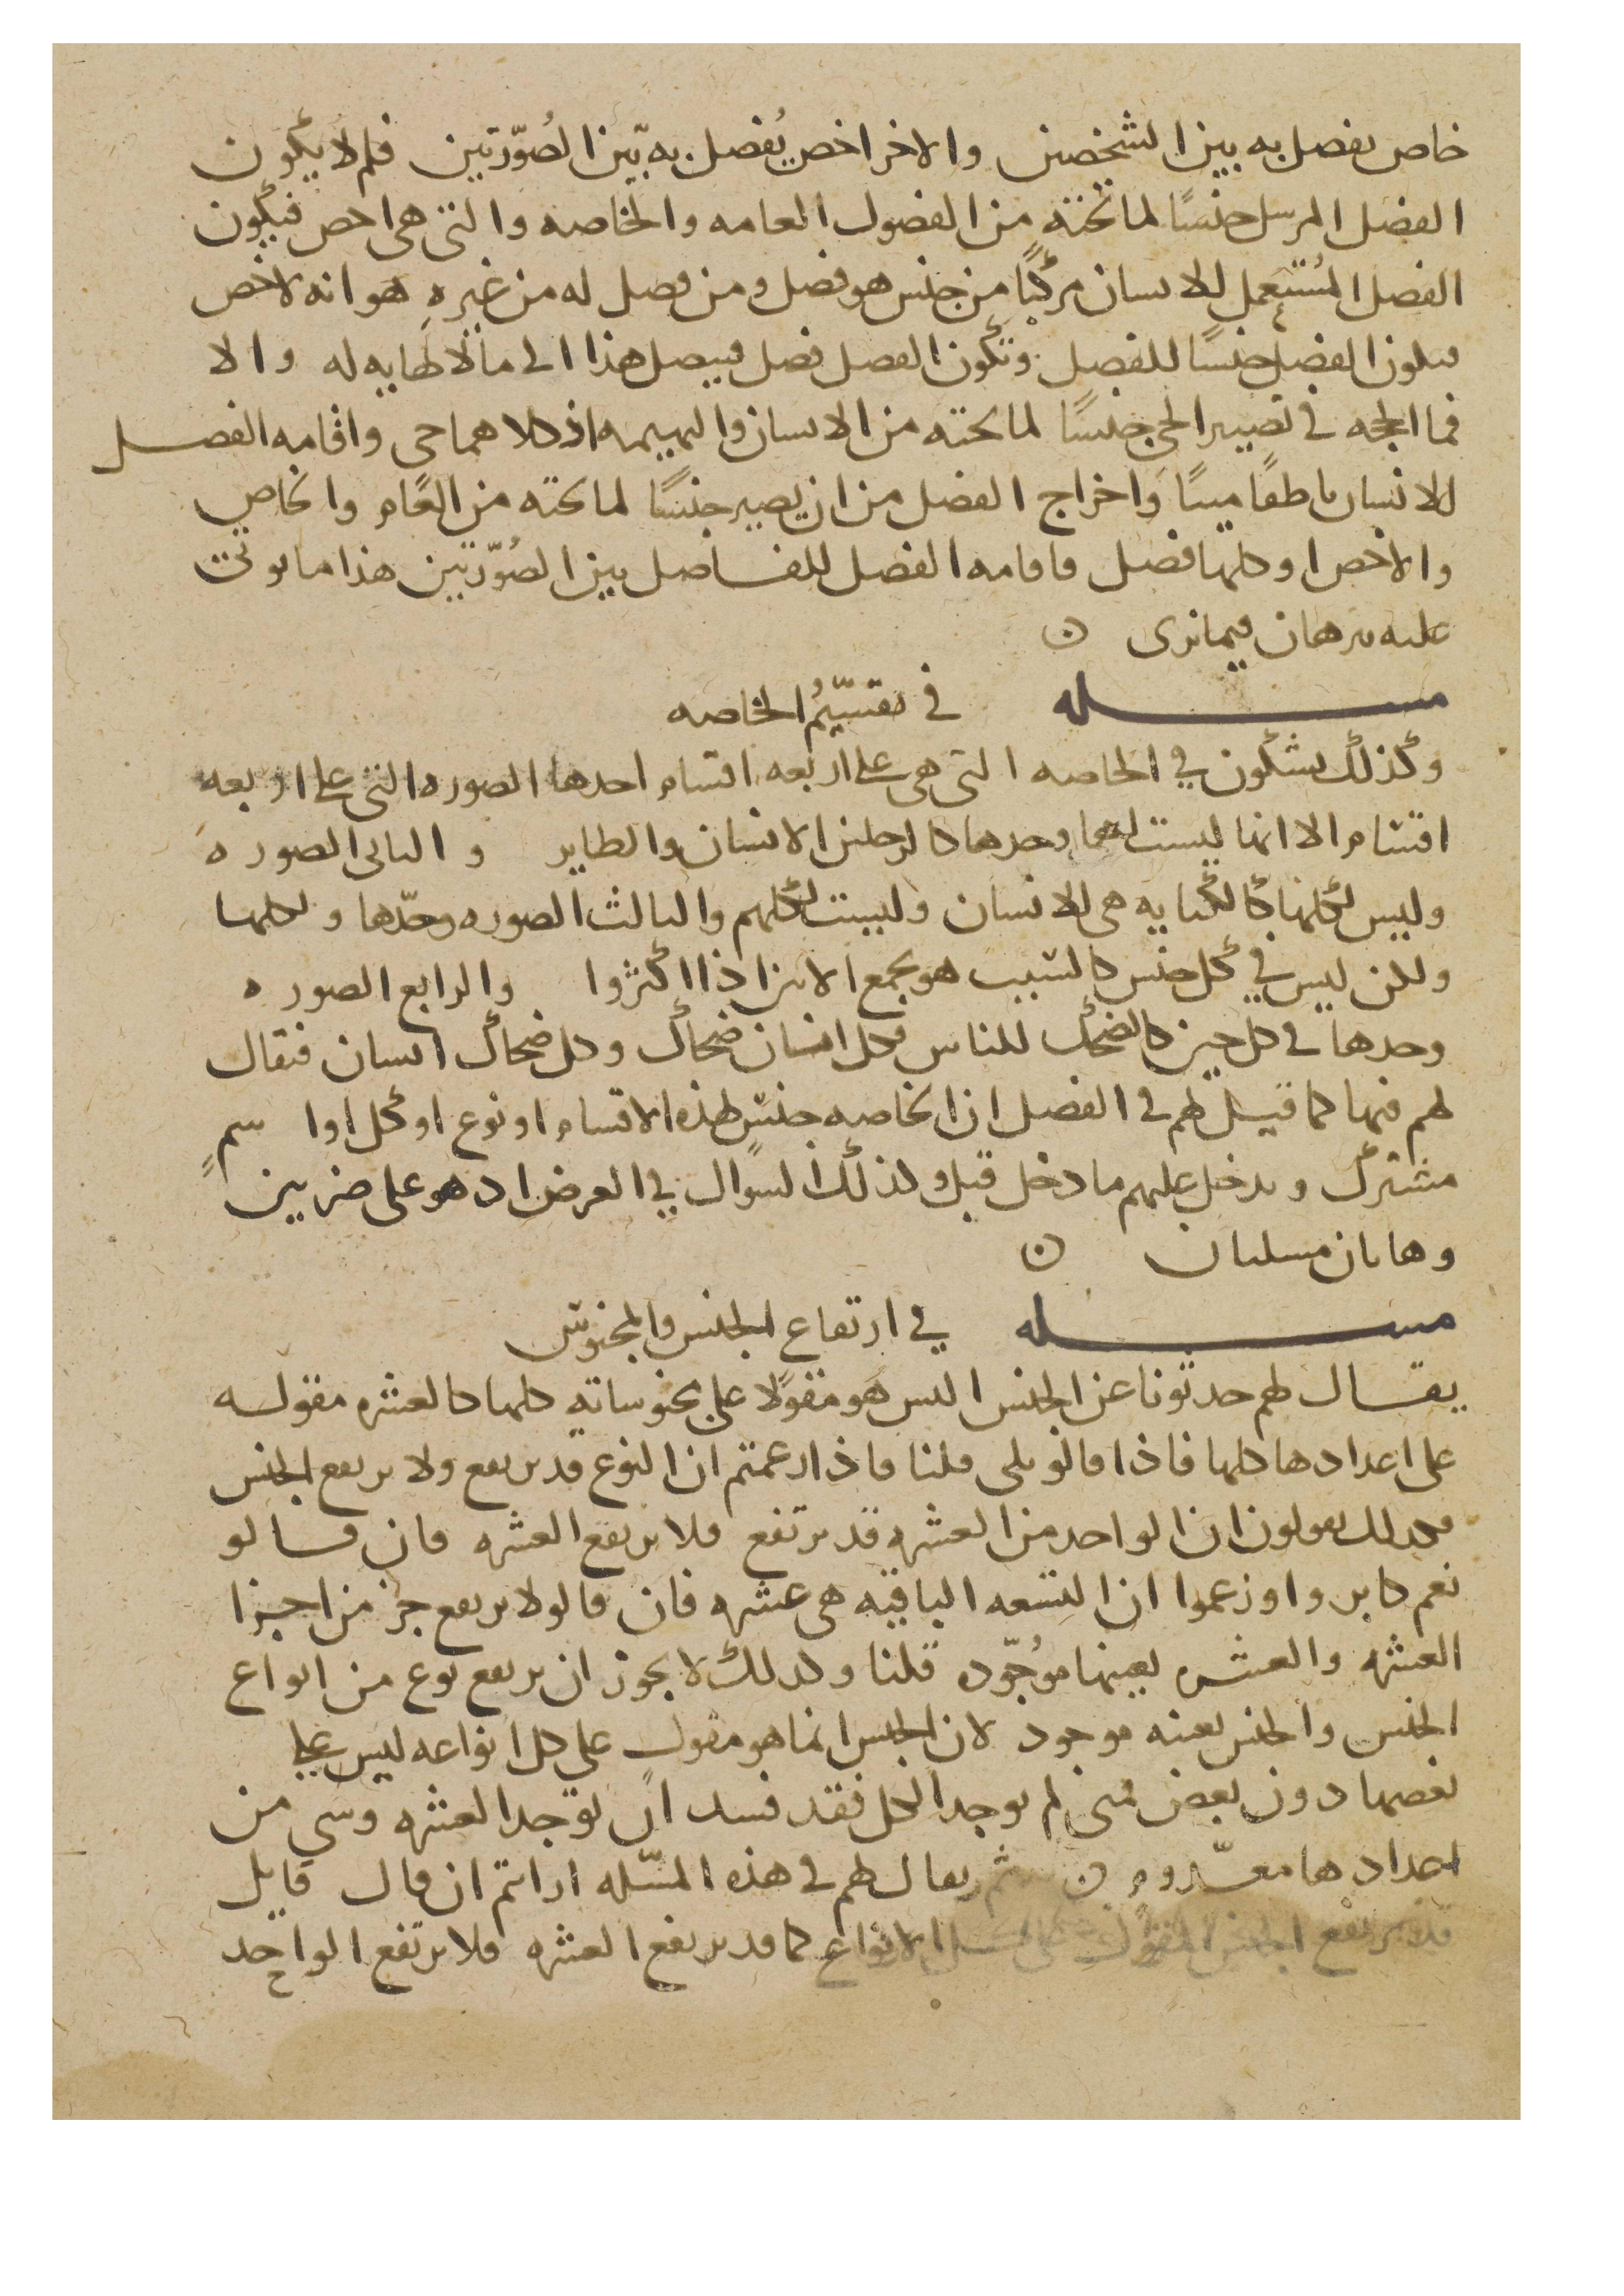 خاص يفصل به بين الشخصين والاخر اخص يُفصل به بيّن الصُوّرتين فلم لا يكون
الفصل المرسل جنسًا لما تحته من الفصول العامه والخاصه والتي هي اخص فيكون
الفصل المُستعمل للانسان مركبًا من جنس هو فصل ومن فصل له من غيره هو انه لاخص
فيكون الفصل جنسًا للفصل وتكون الفصل فصل فيصل هذا الى ما لا نهايه له والا
فما الحجه في تصيير الحي جنسًا لما تحته من الانسان والبهيمه اذ كلاهما حي واقامه الفصل
للانسان ناطقًا ميتًا واخراج الفصل من ان يصير جنسًا لما تحته من العام والخاص
والاخص او كلها فصل فاقامه الفصل للفاصل بين الصُوّرتين هذا ما يوتى
عليه برهان فيما نرى ن
مسله في تقسيّمُ الخاصه
وكذلك يشكون في الخاصه التي هي على اربعه اقسام احدها الصوره التي على اربعه
اقسام الا انها ليست لها وحدها كالرجلين الانسان والطاير والثاني الصوره
وليس لكلها كالكتابه هي للانسان وليست لكلهم والثالث الصوره وحدّها ولكلها
ولكن ليس في كل حين كالشيب هو بجمع الانس اذا اكثروا والرابع الصوره
وحدها في كل حين كالضحك للناس فكل انسان ضحاك وكل ضحاك انسان فيقال
لهم فيها كما قيل لهم في الفصل ان الخاصه جنس لهذه الاقسام او نوع او كل او اسم
مشترك ويدخل عليهم ما دخل قبل وكذلك السوال في العرض اذ هو على ضربين
وهاتان مسلتان ن
مسله في ارتفاع الجنس والمجنوس
يقال لهم حدثونا عن الجنس اليس هو مقولًا على مجنوساته كلها كالعشره مقوله
على اعدادها كلها فاذا قالو بلى قلنا فاذا زعمتم ان النوع قد يرتفع ولا يرتفع الجنس
فكذلك يقولون ان الواحد من العشره قد يرتفع فلا يرتفع العشره فان قالو
نعم كابروا وزعموا ان التسعه الباقيه هي عشره فان قالو لا يرتفع جز من اجزا
العشره والعشره بعينها موُجّوده قلنا وكذلك لا يجوز ان يرتفع نوع من انواع
الجنس والجنس بعينه موجود لان الجنس انما هو مقول على كل انواعه ليس على
بعضها دون بعض فمتى لم يوجد الكل فقد فسد ان توجد العشره وشي من
اعدادها معدوم ن ثم يقال لهم في هذه المسّله ارايتم ان قال قايل
قد يرتفع الجنس المقول على كل الانواع كما قد يرتفع العشره فلا يرتفع الواحد